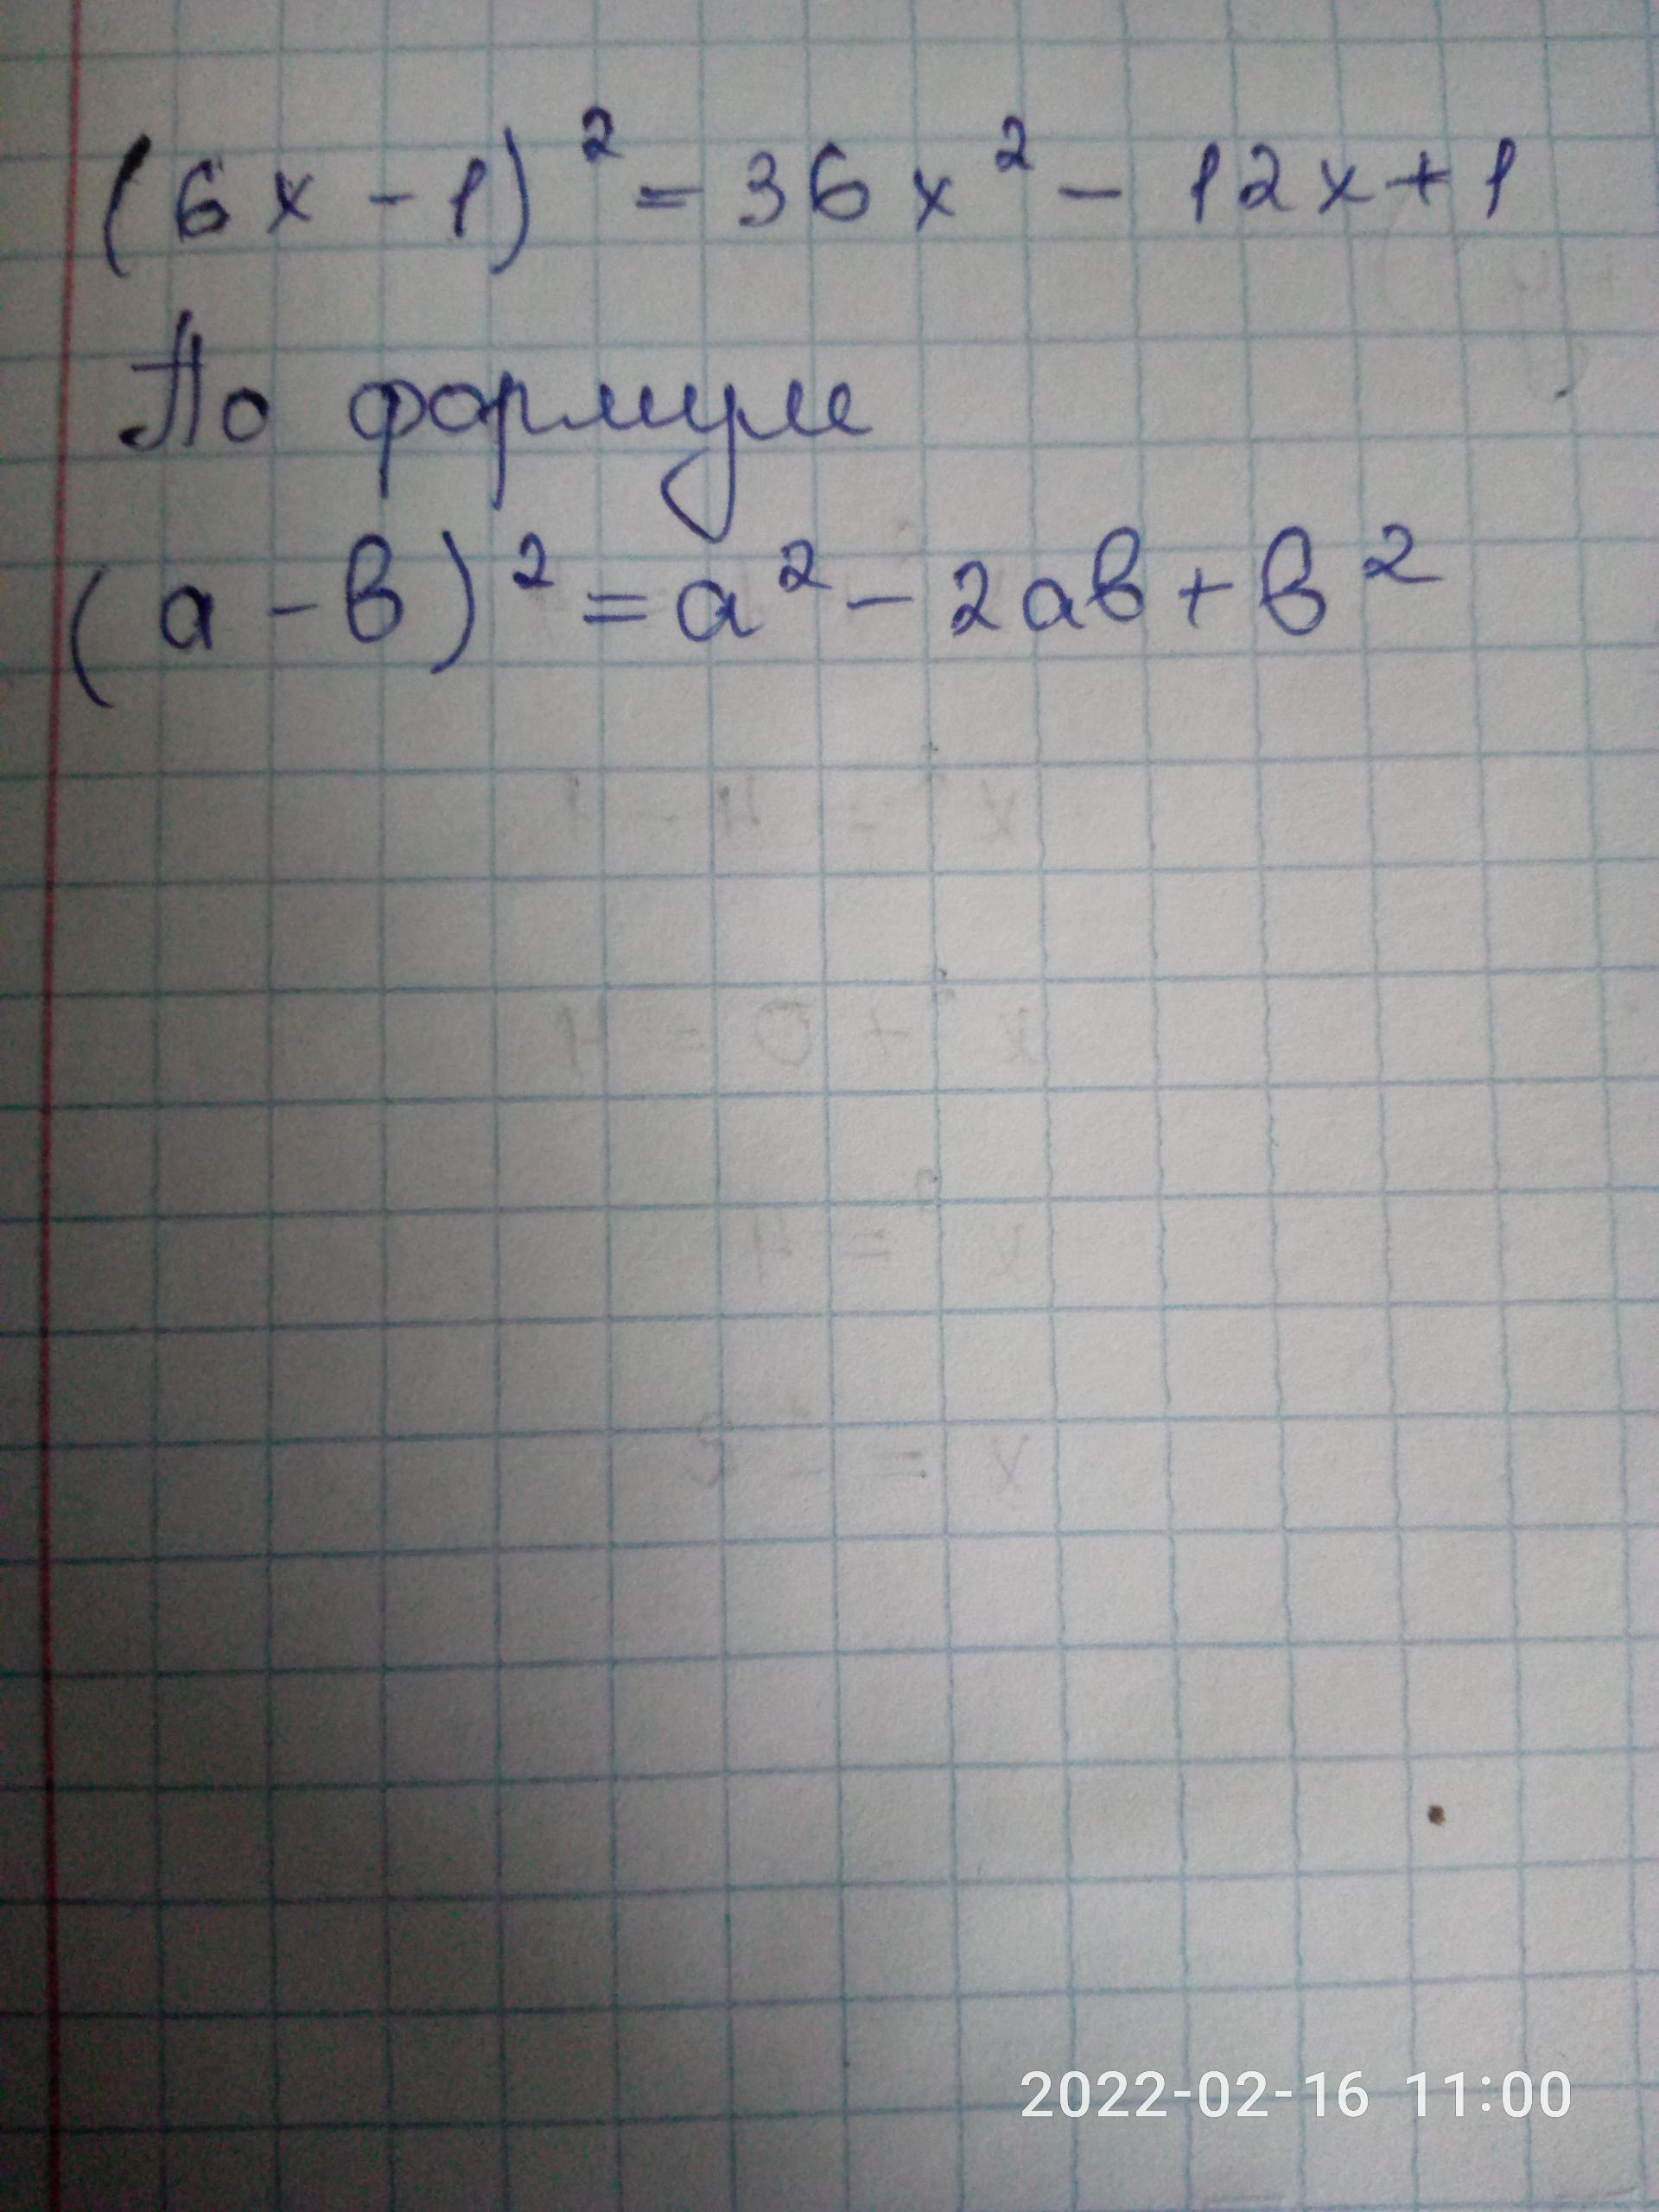 (6x - 1)² = 36x² - 12x + 1
По формуле
(а - в)² = а² - 2ав + в²
2022-02-16 11:00